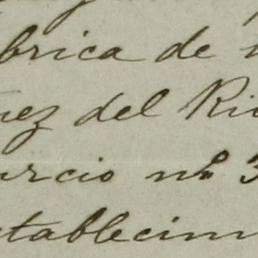 brica de
nez del Rio
urcio nº 3
stablecim